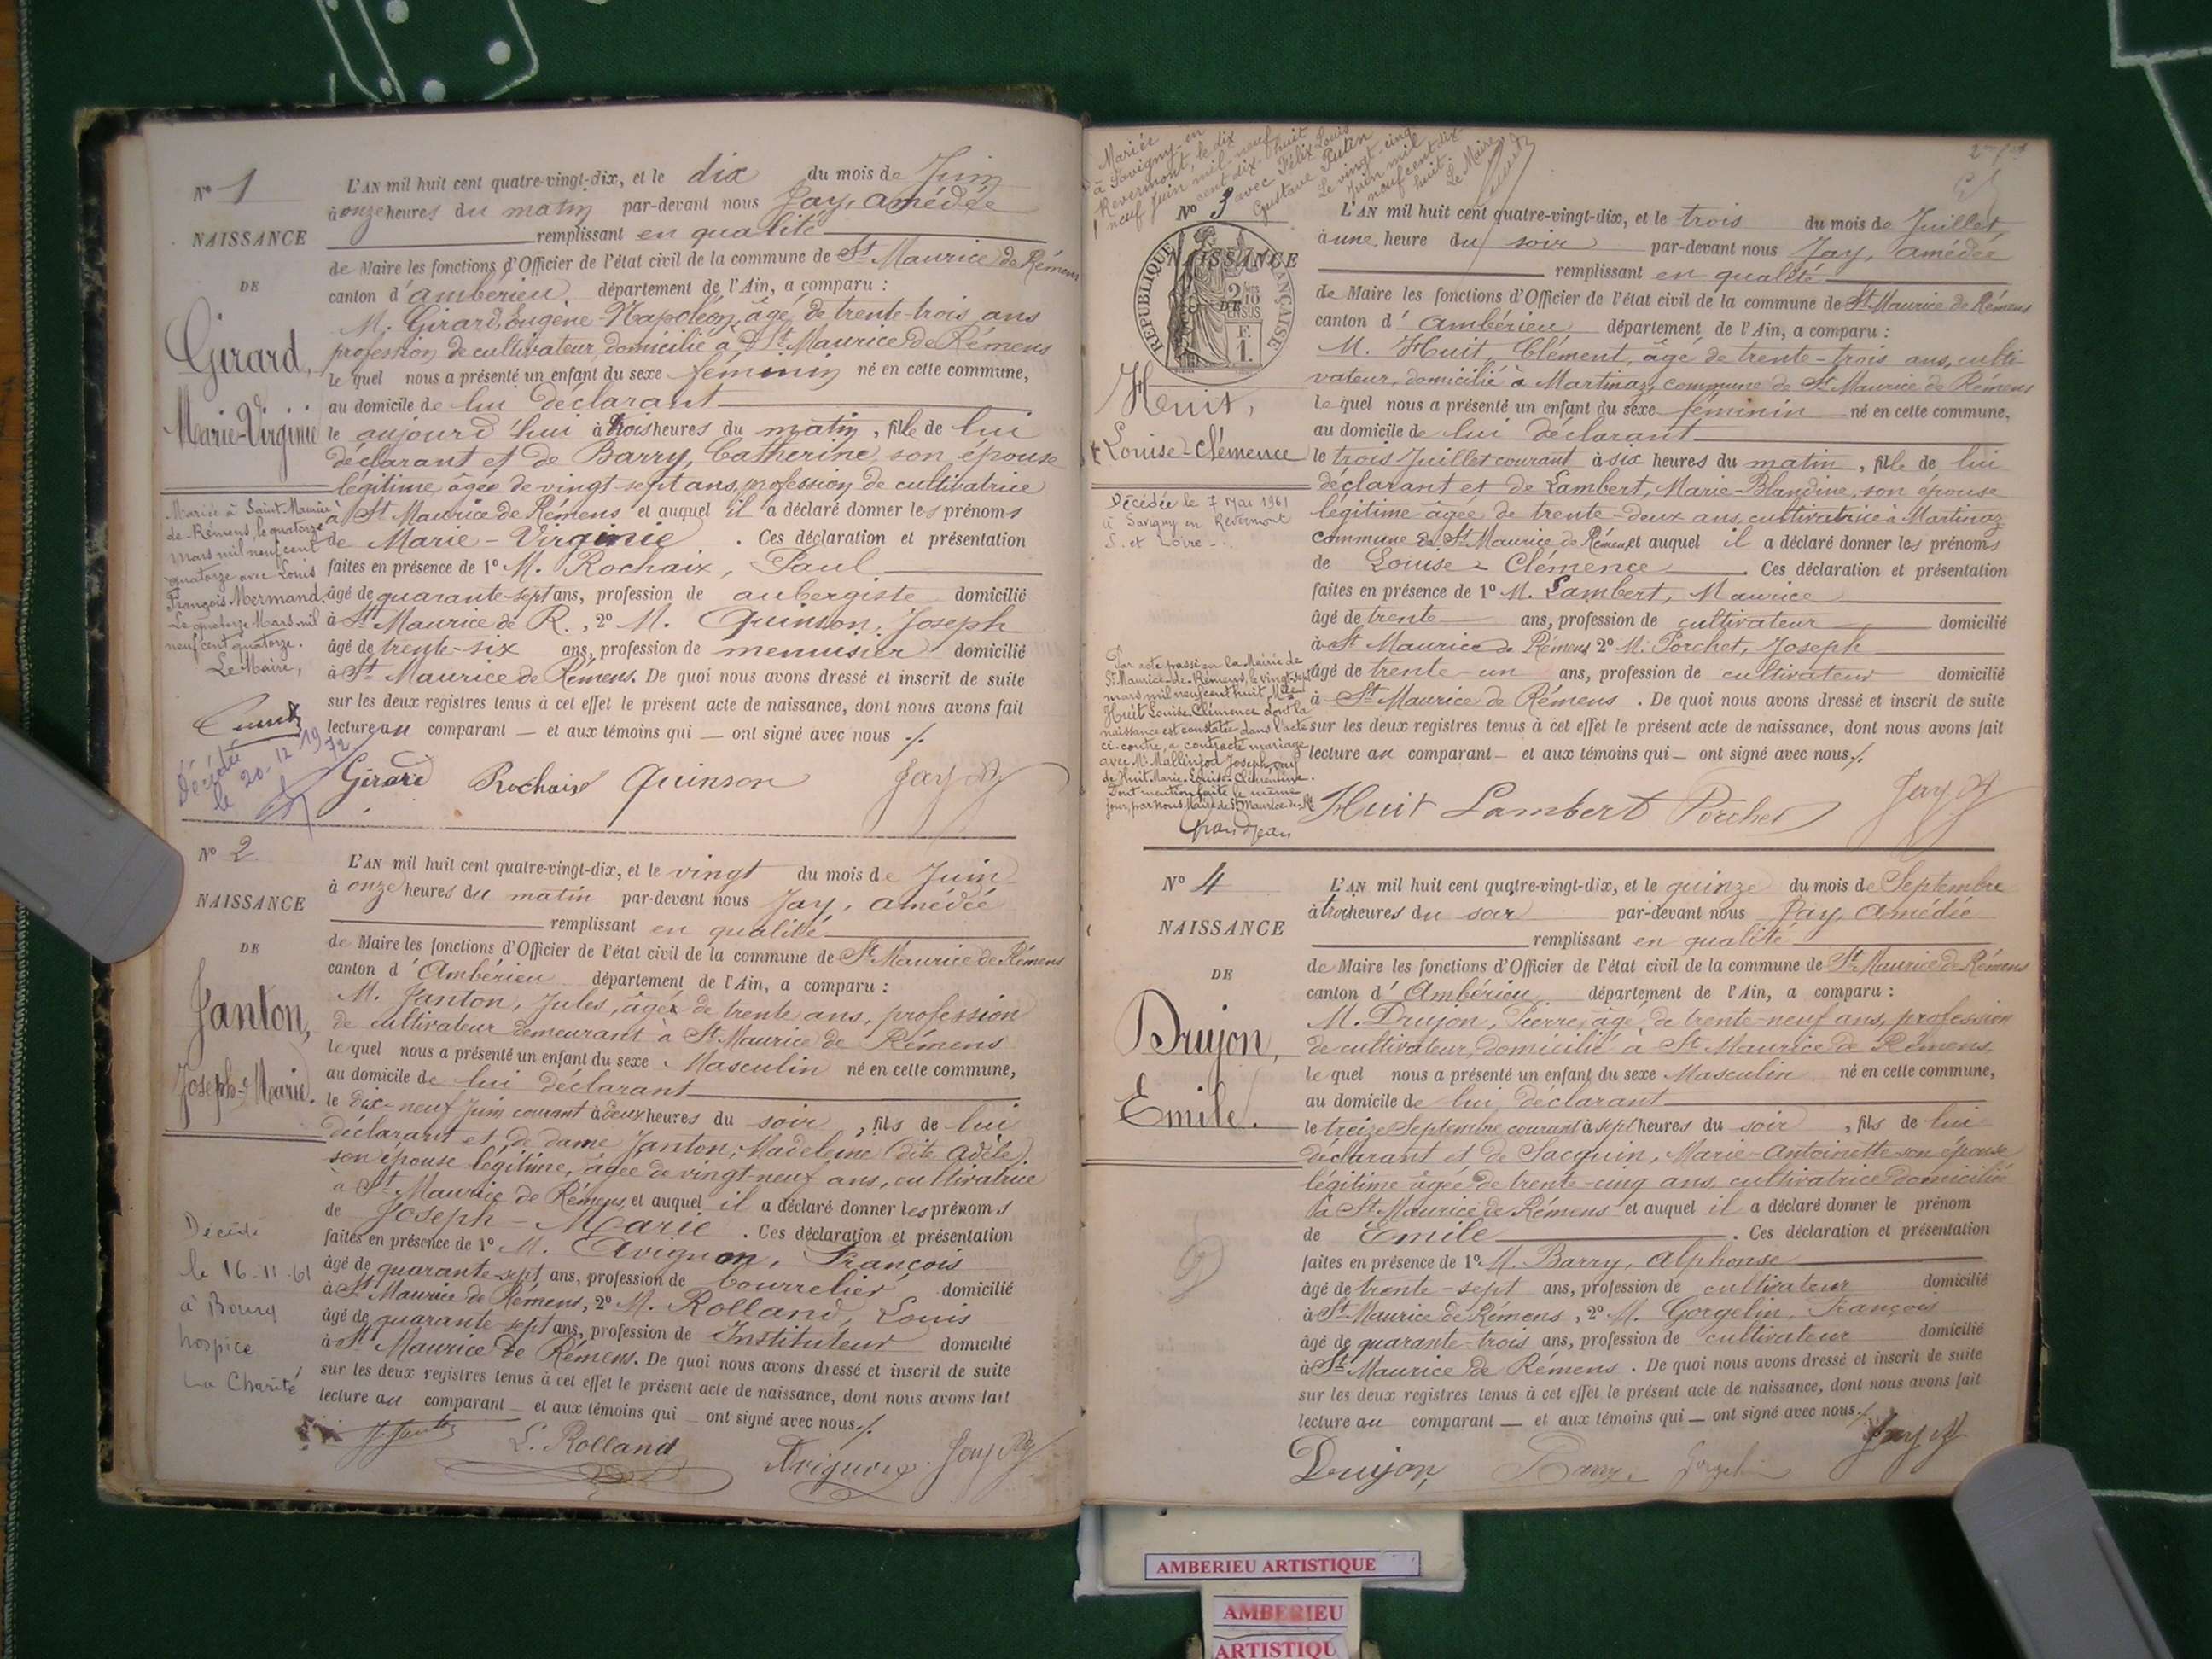 N° 1
NAISSANCE
DE
Girard,
Marie-Virginie
Mariée à Saint-Maurice
de-Rémens, le quatorze
Mars mil neuf cent
quatorze avec Louis
François Mermand.
Le quatorze Mars mil
neuf cent quatorze.
Le Maire,
Décédée
le 20-12-1972
L'AN mil huit cent quatre-vingt-dix, et le dix du mois de Juin
à onze heures du matin par-devant nous Jay, Amédée
remplissant en qualité
de Maire les fonctions d'Officier de l'état civil de la commune de St Maurice de Rémens
canton d'Ambérieu, département de l'Ain, a comparu :
M. Girard, Eugène-Napoléon, âgé de trente-trois ans
profession de cultivateur, domicilié à St Maurice de Rémens
lequel nous a présenté un enfant du sexe féminin né en cette commune,
au domicile de lui déclarant
le aujourd'hui à trois heures du matin, fille de lui
déclarant et de Barry, Catherine, son épouse
légitime, âgée de vingt-sept ans, profession de cultivatrice
à St Maurice de Rémens et auquel il a déclaré donner les prénoms
de Marie-Virginie. Ces déclaration et présentation
faites en présence de 1° M. Rochaix, Paul
âgé de quarante-sept ans, profession de aubergiste domicilié
à St Maurice de R., 2° M. Quinson, Joseph
âgé de trente-six ans, profession de menuisier domicilié
à St Maurice de Rémens. De quoi nous avons dressé et inscrit de suite
sur les deux registres tenus à cet effet le présent acte de naissance, dont nous avons fait
lecture au comparant — et aux témoins qui — ont signé avec nous ./.
Girard Rochaix Quinson Jay A
N° 2
NAISSANCE
DE
Janton,
Joseph-Marie.
Décédé
le 16-11-61
à Bourg
hospice
La Charité
L'AN mil huit cent quatre-vingt-dix, et le vingt du mois de Juin
à onze heures du matin par-devant nous Jay, Amédée
remplissant en qualité
de Maire les fonctions d'Officier de l'état civil de la commune de St Maurice de Rémens
canton d'Ambérieu département de l'Ain, a comparu :
M. Janton, Jules, âgé de trente ans, profession
de cultivateur demeurant à St Maurice de Rémens
lequel nous a présenté un enfant du sexe Masculin né en cette commune,
au domicile de lui déclarant
le dix-neuf Juin courant à deux heures du soir, fils de lui
déclarant et de dame Janton, Madeleine (dite Adèle)
son épouse légitime, âgée de vingt-neuf ans, cultivatrice
à St Maurice de Rémens, et auquel il a déclaré donner les prénoms
de Joseph-Marie. Ces déclaration et présentation
faites en présence de 1° M. Avignon, François
âgé de quarante-sept ans, profession de bourrelier domicilié
à St Maurice de Rémens, 2° M. Rolland, Louis
âgé de quarante-sept ans, profession de Instituteur domicilié
à St Maurice de Rémens. De quoi nous avons dressé et inscrit de suite
sur les deux registres tenus à cet effet le présent acte de naissance, dont nous avons fait
lecture au comparant — et aux témoins qui — ont signé avec nous ./.
J. Janton L. Rolland Avignon Jay A
Mariée
à Savigny-en
Revermont, le dix
neuf Juin mil-neuf
cent dix-huit
avec Félix Louis
Gustave Putin
Le vingt-cinq
Juin mil
neuf cent dix
huit.
Le Maire
N° 3
NAISSANCE
DE
REPUBLIQUE FRANÇAISE
2/10
EN SUS
F.
1.
Huit,
Louise-Clémence
Décédée le 7 Mai 1961
à Savigny en Revermont
S. et Loire -.
Par acte passé en la Mairie de
St-Maurice-de-Rémens, le vingt-sept
mars mil neuf cent huit Melle
Huit Louise-Clémence dont la
naissance est constatée dans l'acte
ci-contre, a contracté mariage
avec Mr Mallinjod Joseph, veuf
de Huit Marie-Louise-Clémentine.
Dont mention faite le même
jour, par nous Maire de St Maurice-de-R.
Grandjean
L'AN mil huit cent quatre-vingt-dix, et le trois du mois de Juillet,
à une heure du soir par-devant nous Jay, Amédée
remplissant en qualité
de Maire les fonctions d'Officier de l'état civil de la commune de St Maurice de Rémens
canton d'Ambérieu département de l'Ain, a comparu :
M. Huit, Clément, âgé de trente-trois ans, culti-
vateur, domicilié à Martinaz, commune de St Maurice de Rémens
lequel nous a présenté un enfant du sexe féminin né en cette commune,
au domicile de lui déclarant
le trois Juillet courant à six heures du matin, fille de lui
déclarant et de Lambert, Marie-Blandine, son épouse
légitime âgée de trente-deux ans, cultivatrice à Martinaz
commune de St Maurice de Rémens, et auquel il a déclaré donner les prénoms
de Louise-Clémence. Ces déclaration et présentation
faites en présence de 1° M. Lambert, Maurice
âgé de trente ans, profession de cultivateur domicilié
à St Maurice de Rémens 2° M. Porchet, Joseph
âgé de trente-un ans, profession de cultivateur domicilié
à St Maurice de Rémens. De quoi nous avons dressé et inscrit de suite
sur les deux registres tenus à cet effet le présent acte de naissance, dont nous avons fait
lecture au comparant — et aux témoins qui — ont signé avec nous ./.
Huit Lambert Porchet Jay A
N° 4
NAISSANCE
DE
Drujon,
Emile.
L'AN mil huit cent quatre-vingt-dix, et le quinze du mois de Septembre
à trois heures du soir par-devant nous Jay, Amédée
remplissant en qualité
de Maire les fonctions d'Officier de l'état civil de la commune de St Maurice de Rémens
canton d'Ambérieu département de l'Ain, a comparu :
M. Drujon, Pierre, âgé de trente-neuf ans, profession
de cultivateur, domicilié à St Maurice de Rémens
lequel nous a présenté un enfant du sexe Masculin né en cette commune,
au domicile de lui déclarant
le treize Septembre courant à sept heures du soir, fils de lui
déclarant et de Sacquin, Marie-Antoinette son épouse
légitime âgée de trente-cinq ans cultivatrice domiciliée
à St Maurice de Rémens et auquel il a déclaré donner le prénom
de Emile. Ces déclaration et présentation
faites en présence de 1° M. Barry, Alphonse
âgé de trente-sept ans, profession de cultivateur domicilié
à St Maurice de Rémens, 2° M. Gorgelin, François
âgé de quarante-trois ans, profession de cultivateur domicilié
à St Maurice de Rémens. De quoi nous avons dressé et inscrit de suite
sur les deux registres tenus à cet effet le présent acte de naissance, dont nous avons fait
lecture au comparant — et aux témoins qui — ont signé avec nous ./.
Drujon, Barry Gorgelin Jay A
AMBERIEU ARTISTIQUE
AMBERIEU
ARTISTIQU